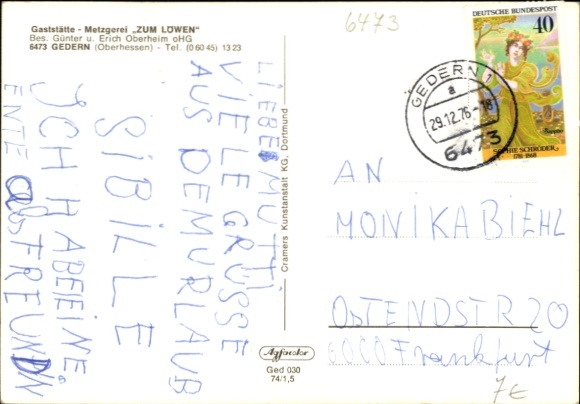 Gaststätte - Metzgerei „ZUM LÖWEN"
Bes. Günter u. Erich Oberheim oHG
6473 GEDERN (Oberhessen) - Tel. (0 60 45) 13 23
6473
DEUTSCHE BUNDESPOST
40
SOPHIE SCHRÖDER
1781-1868
GEDERN 1
a
29.12.76-18
6473
LIEBE MUTTI
VIELE GRÜSSE
AUS DEM URLAUB
SIBILLE
ICH HABE EINE
ENTE ALS FREUNDIN.
Cramers Kunstanstalt KG, Dortmund
AN
MONIKA BIEHL
OSTENDSTR 20
6000 Frankfurt
Agfacolor
Ged 030
74/1,5
7€